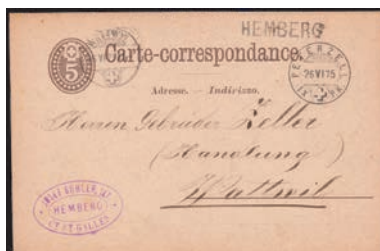 HEMBERG
5
Carte-correspondance.
Adresse. Indirizzo.
PETERZELL
26 VI 75
Herren Gebrüder Zeller
(Handlung)
Wattwil
HEMBERG
ST GALLEN